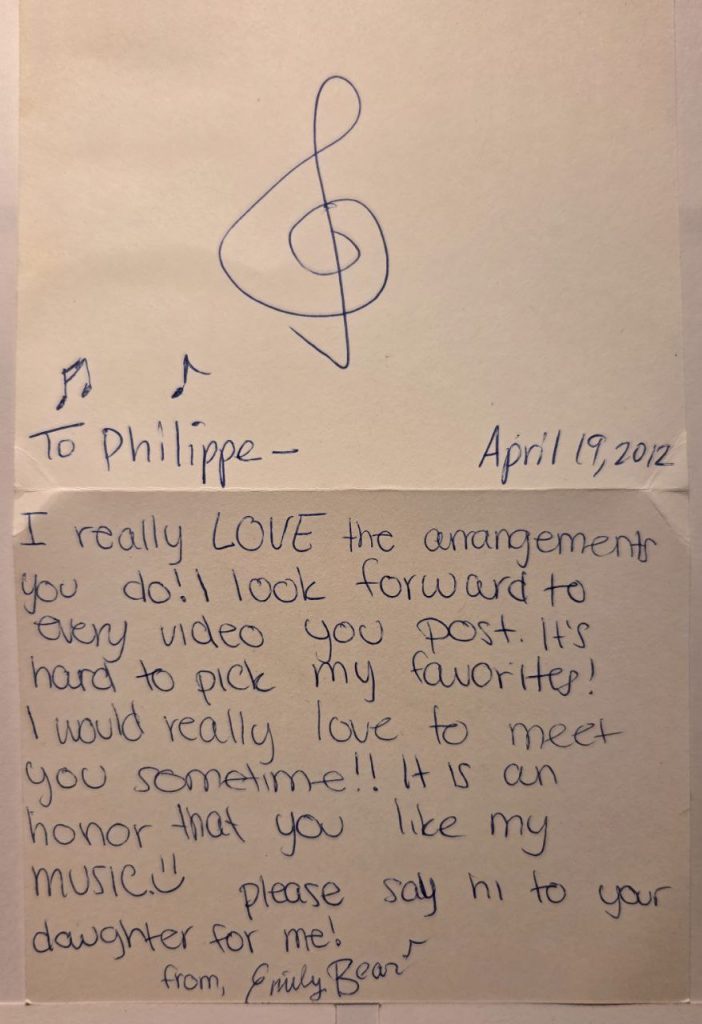 To Philippe – April 19, 2012
I really LOVE the arrangements
you do! I look forward to
every video you post. It's
hard to pick my favorites!
I would really love to meet
you sometime!! It is an
honor that you like my
music. please say hi to your
daughter for me!
from, Emily Bear